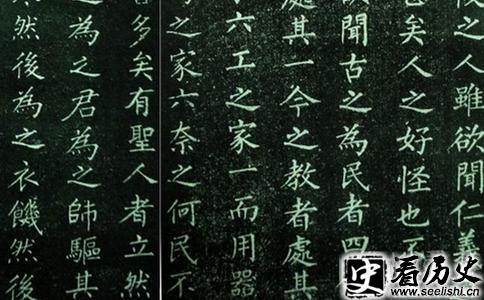 後之人雖欲聞仁義
矣人之好怪也不
欲聞古之為民者四
處其一今之教者處其
六工之家一而用器
焉之家六奈之何民不
害多矣有聖人者立然
為之君為之師驅其
然後為之衣饑然後
史 看历史
www.seelishi.cn